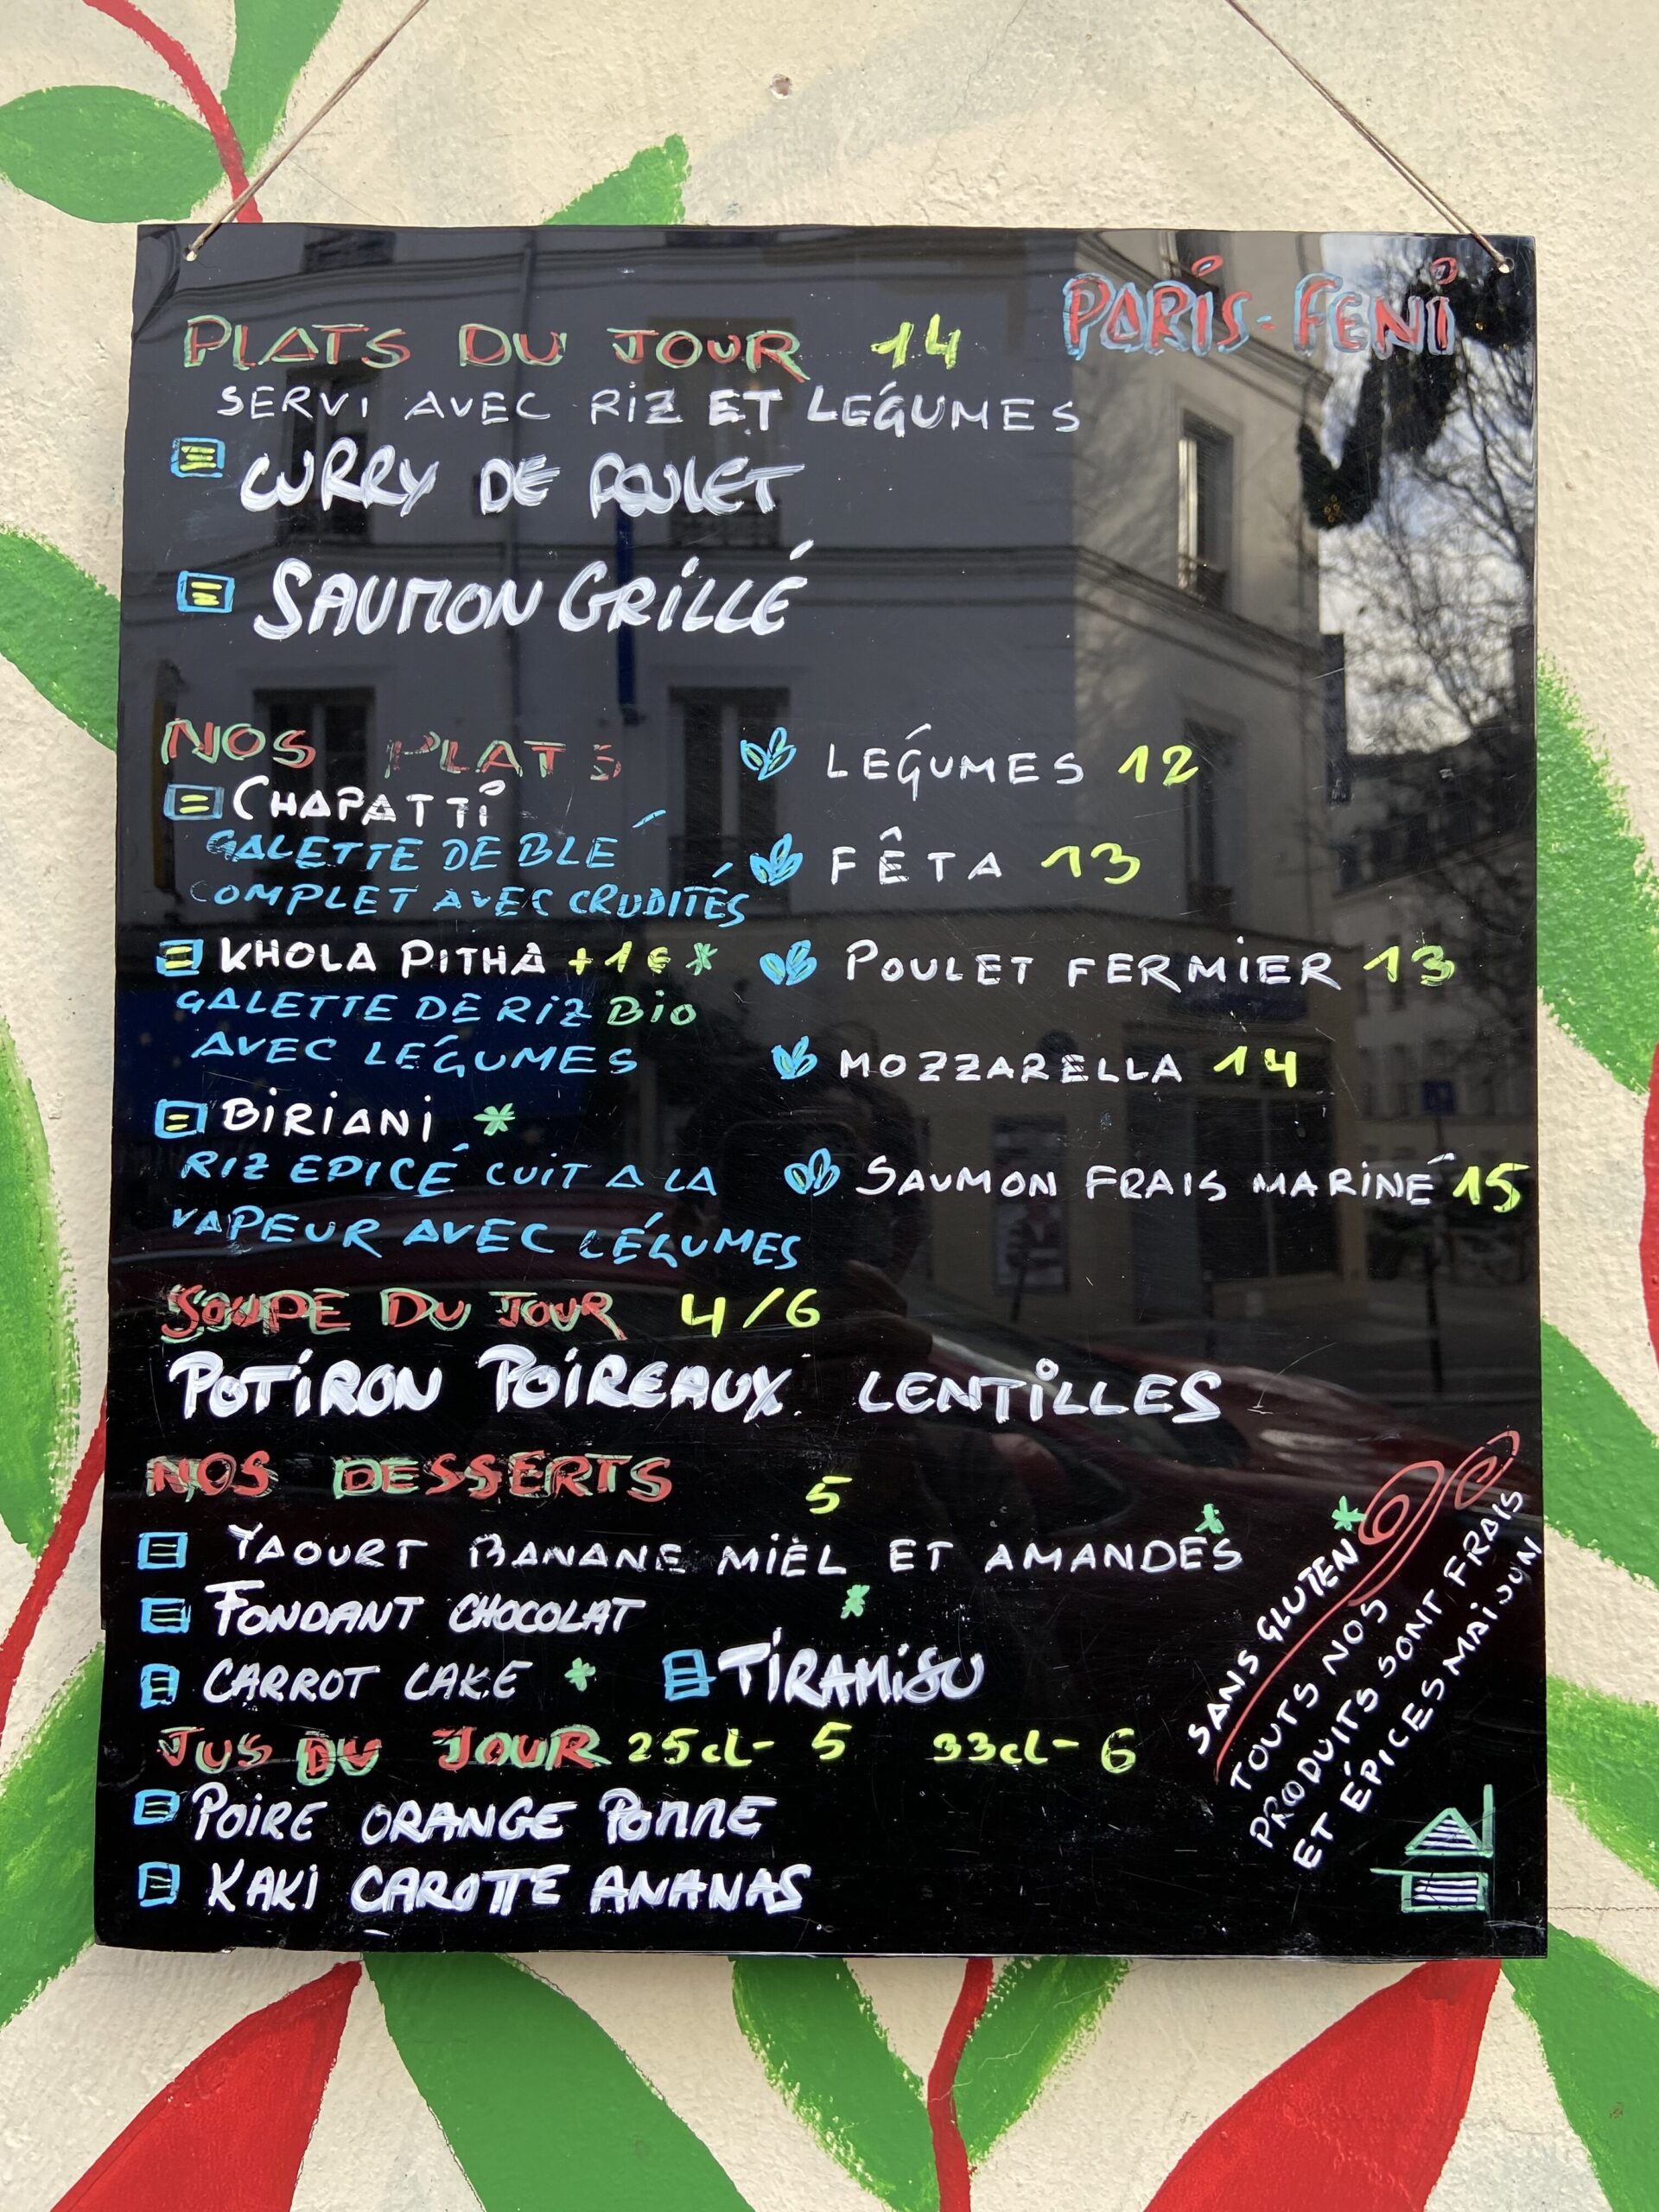 PARIS-FENI
PLATS DU JOUR 14
SERVI AVEC RIZ ET LEGUMES
CURRY DE POULET
SAUMON GRILLÉ
NOS PLATS
CHAPATTI
GALETTE DE BLÉ
COMPLET AVEC CRUDITÉS
KHOLA PITHA +1€*
GALETTE DE RIZ BIO
AVEC LÉGUMES
BIRIANI *
RIZ EPICÉ CUIT A LA
VAPEUR AVEC LÉGUMES
LÉGUMES 12
FÊTA 13
POULET FERMIER 13
MOZZARELLA 14
SAUMON FRAIS MARINÉ 15
SOUPE DU JOUR 4/6
POTIRON POIREAUX LENTILLES
NOS DESSERTS 5
YAOURT BANANE MIEL ET AMANDES *
FONDANT CHOCOLAT *
CARROT CAKE *
TIRAMISU
JUS DU JOUR 25cl- 5 33cl- 6
POIRE ORANGE POMME
KAKI CAROTTE ANANAS
SANS GLUTEN *
TOUTS NOS
PRODUITS SONT FRAIS
ET ÉPICES MAISON